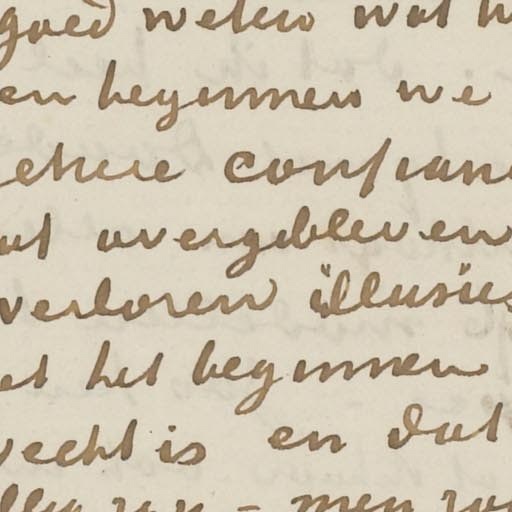 goed weten wat
en beginnen we
confian
overgebleven
verloren illusies
het beginnen
recht is en dat
– men